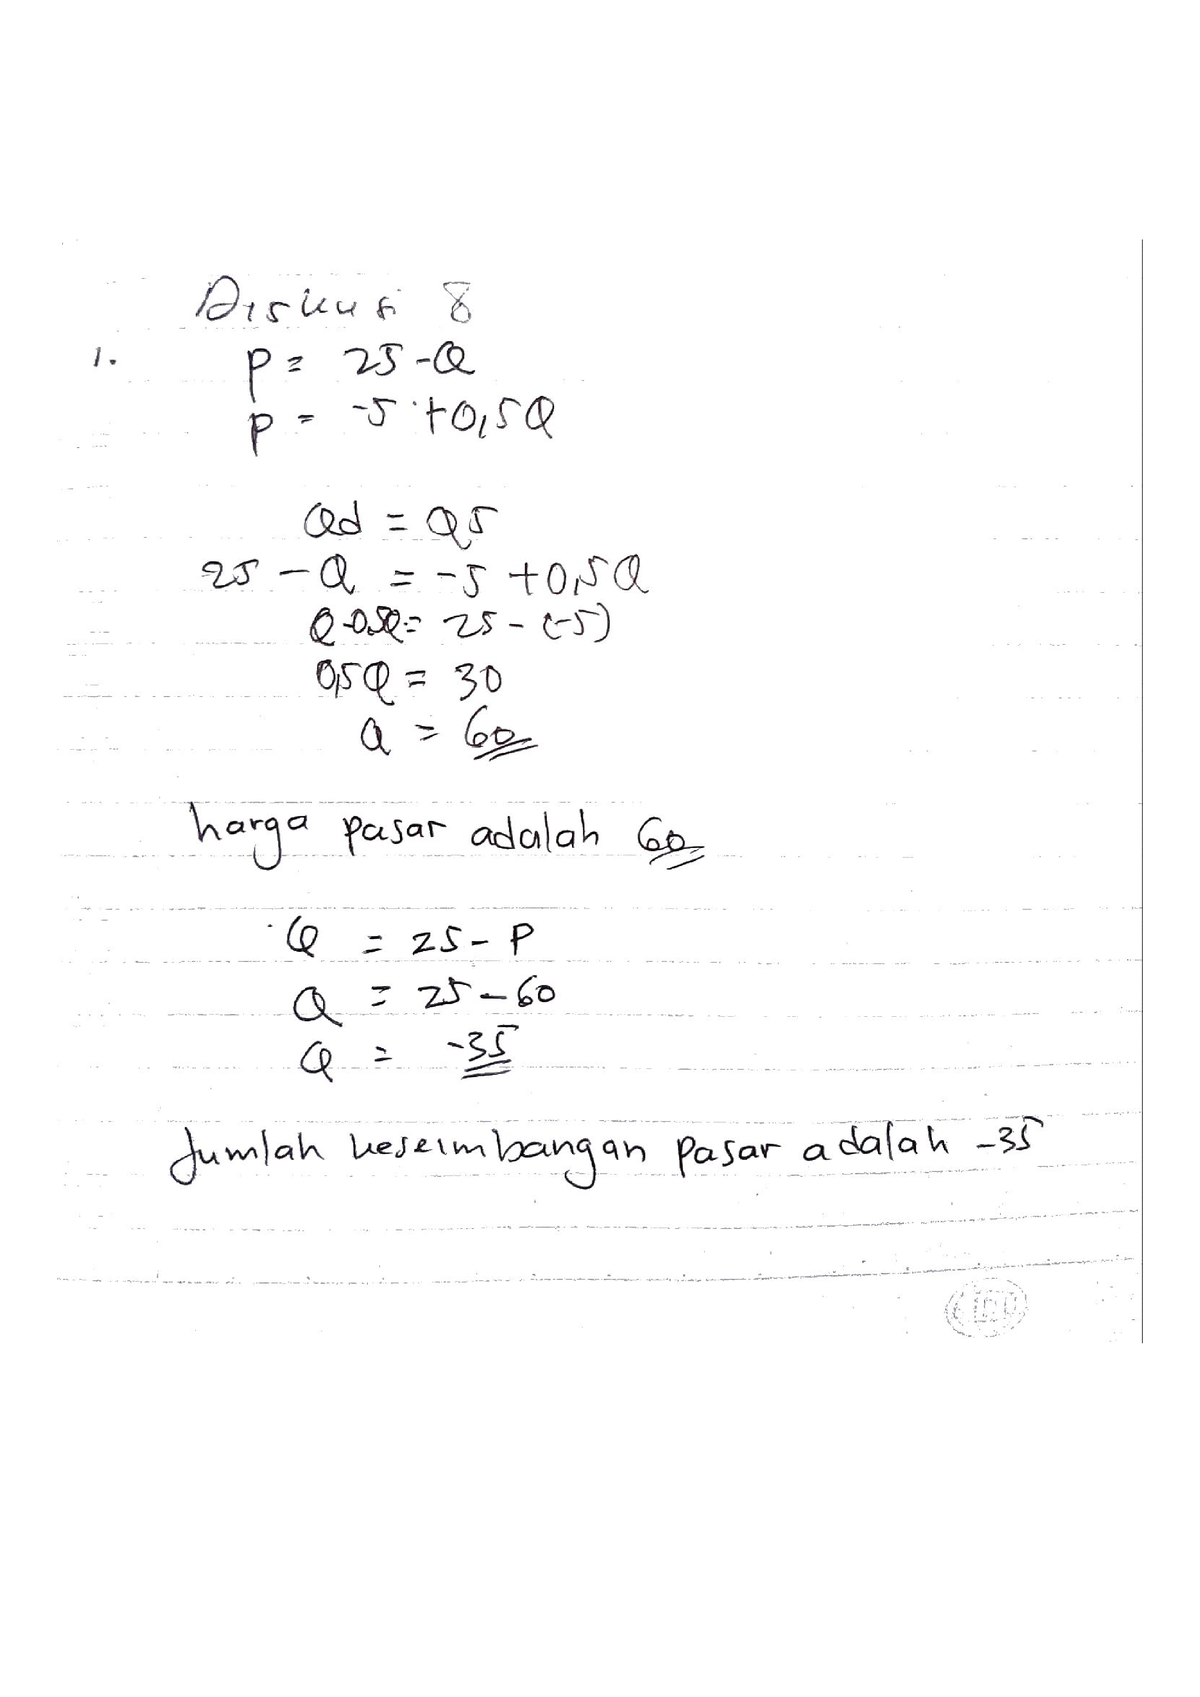 Diskusi 8
1. P = 25 - Q
P = -5 + 0,5Q
Qd = Qs
25 - Q = -5 + 0,5Q
Q-0,5Q = 25 - (-5)
0,5Q = 30
Q = 60
harga pasar adalah 60
Q = 25 - P
Q = 25 - 60
Q = -35
Jumlah keseimbangan pasar adalah -35